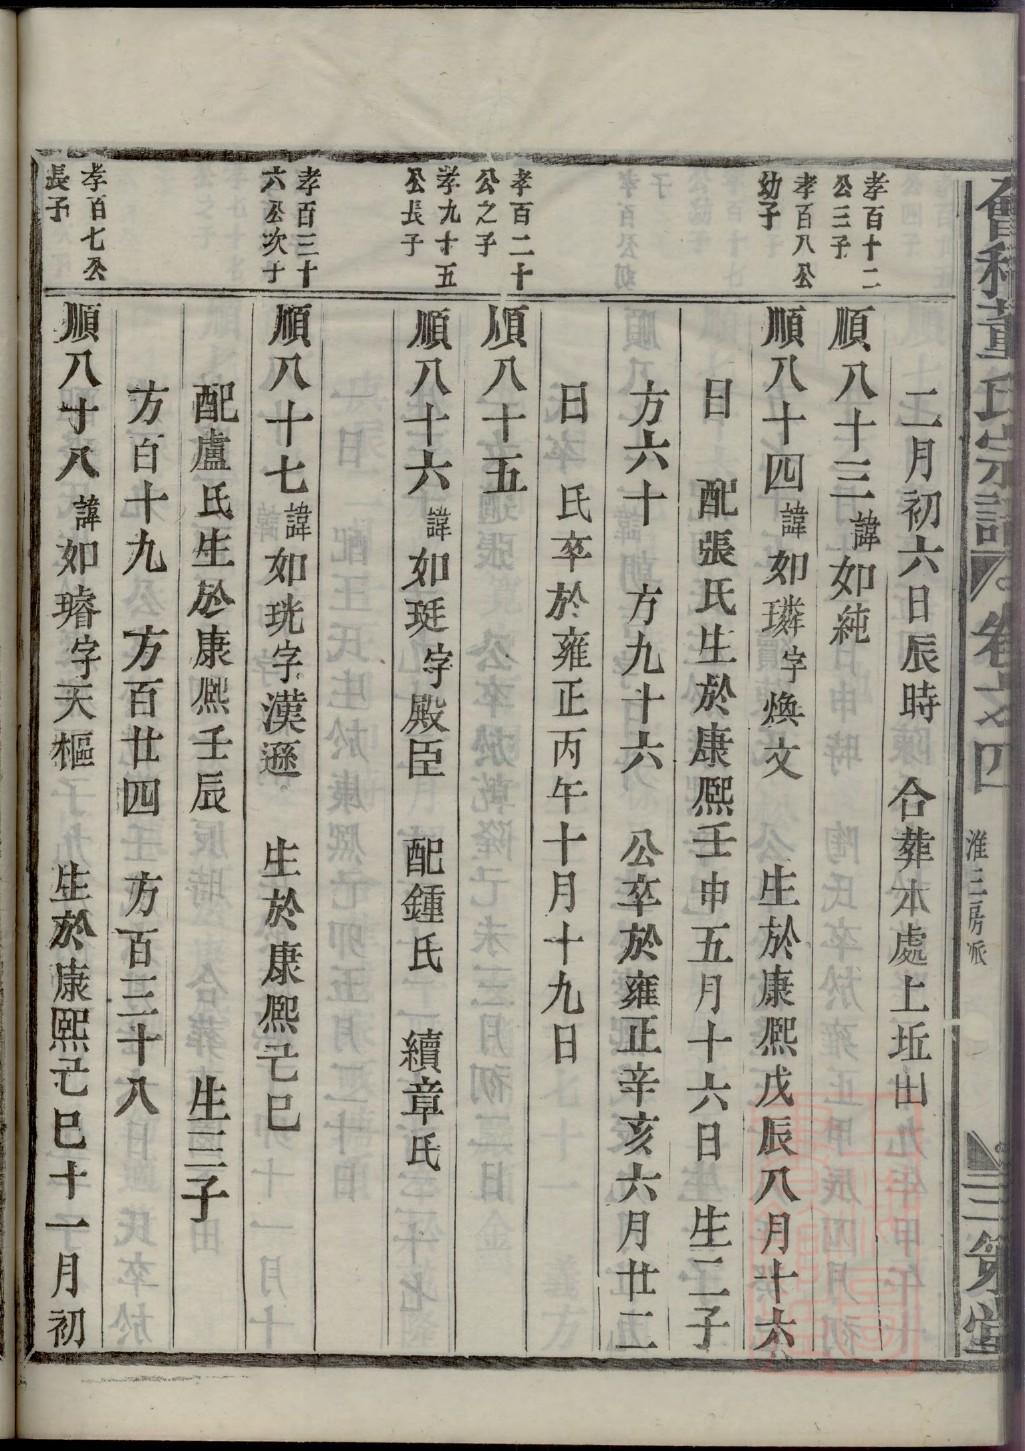 會稽董氏宗譜 卷之四 淮三房派 三策堂
二月初六日辰時 合葬本處上坵山
孝百十二公三子
順八十三諱如純
孝百八公幼子
順八十四諱如璘字煥文 生於康熙戊辰八月十六
日 配張氏生於康熙壬申五月十六日 生二子
方六十 方九十六 公卒於雍正辛亥六月廿二
日 氏卒於雍正丙午十月十九日
孝百二十公之子
順八十五
孝九十五公長子
順八十六諱如珽字殿臣 配鍾氏 續章氏
孝百三十六公次子
順八十七諱如珖字漢遜 生於康熙己巳
配盧氏生於康熙壬辰 生三子
方百十九 方百廿四 方百三十八
孝百七公長子
順八十八諱如璿字天樞 生於康熙己巳十一月初